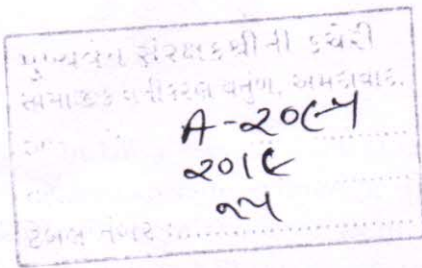 મુખ્યવન સંરક્ષકશ્રીની કચેરી
સામાજીક વનીકરણ વર્તુળ, અમદાવાદ.
A-૨૦૯૫
૨૦૧૯
ટેબલ નંબર :